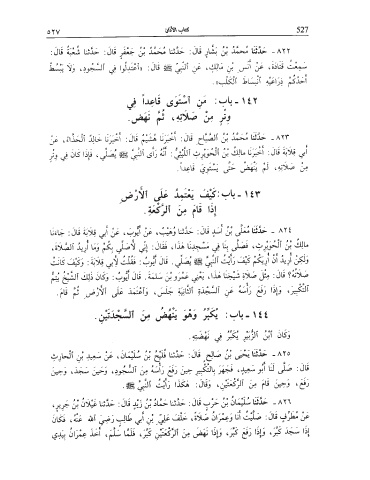 ٥٢٧ كتاب الأذان 527
٨٢٢ - حَدَّثَنَا مُحَمَّدُ بْنُ بَشَّارٍ قَالَ: حَدَّثَنَا مُحَمَّدُ بْنُ جَعْفَرٍ قَالَ: حَدَّثَنَا شُعْبَةُ قَالَ:
سَمِعْتُ قَتَادَةَ، عَنْ أَنَسِ بْنِ مَالِكٍ، عَنِ النَّبِيِّ ﷺ قَالَ: «اعْتَدِلُوا فِي السُّجُودِ، وَلَا يَبْسُطْ
أَحَدُكُمْ ذِرَاعَيْهِ انْبِسَاطَ الْكَلْبِ».
١٤٢ - باب: مَنِ اسْتَوَى قَاعِداً فِي
وِتْرٍ مِنْ صَلَاتِهِ، ثُمَّ نَهَضَ.
٨٢٣ - حَدَّثَنَا مُحَمَّدُ بْنُ الصَّبَّاحِ قَالَ: أَخْبَرَنَا هُشَيْمٌ قَالَ: أَخْبَرَنَا خَالِدٌ الْحَذَّاءُ، عَنْ
أَبِي قِلَابَةَ قَالَ: أَخْبَرَنَا مَالِكُ بْنُ الْحُوَيْرِثِ اللَّيْثِيُّ: أَنَّهُ رَأَى النَّبِيَّ ﷺ يُصَلِّي، فَإِذَا كَانَ فِي وِتْرٍ
مِنْ صَلَاتِهِ، لَمْ يَنْهَضْ حَتَّى يَسْتَوِيَ قَاعِداً.
١٤٣ - باب: كَيْفَ يَعْتَمِدُ عَلَى الْأَرْضِ
إِذَا قَامَ مِنَ الرَّكْعَةِ.
٨٢٤ - حَدَّثَنَا مُعَلَّى بْنُ أَسَدٍ قَالَ: حَدَّثَنَا وُهَيْبٌ، عَنْ أَيُّوبَ، عَنْ أَبِي قِلَابَةَ قَالَ: جَاءَنَا
مَالِكُ بْنُ الْحُوَيْرِثِ، فَصَلَّى بِنَا فِي مَسْجِدِنَا هَذَا، فَقَالَ: إِنِّي لَأُصَلِّي بِكُمْ وَمَا أُرِيدُ الصَّلَاةَ،
وَلَكِنْ أُرِيدُ أَنْ أُرِيَكُمْ كَيْفَ رَأَيْتُ النَّبِيَّ ﷺ يُصَلِّي. قَالَ أَيُّوبُ: فَقُلْتُ لِأَبِي قِلَابَةَ: وَكَيْفَ كَانَتْ
صَلَاتُهُ؟ قَالَ: مِثْلَ صَلَاةِ شَيْخِنَا هَذَا، يَعْنِي عَمْرَو بْنَ سَلِمَةَ. قَالَ أَيُّوبُ: وَكَانَ ذَلِكَ الشَّيْخُ يُتِمُّ
التَّكْبِيرَ، وَإِذَا رَفَعَ رَأْسَهُ عَنِ السَّجْدَةِ الثَّانِيَةِ جَلَسَ، وَاعْتَمَدَ عَلَى الْأَرْضِ ثُمَّ قَامَ.
١٤٤ - باب: يُكَبِّرُ وَهُوَ يَنْهَضُ مِنَ السَّجْدَتَيْنِ.
وَكَانَ ابْنُ الزُّبَيْرِ يُكَبِّرُ فِي نَهْضَتِهِ.
٨٢٥ - حَدَّثَنَا يَحْيَى بْنُ صَالِحٍ قَالَ: حَدَّثَنَا فُلَيْحُ بْنُ سُلَيْمَانَ، عَنْ سَعِيدِ بْنِ الْحَارِثِ
قَالَ: صَلَّى لَنَا أَبُو سَعِيدٍ، فَجَهَرَ بِالتَّكْبِيرِ حِينَ رَفَعَ رَأْسَهُ مِنَ السُّجُودِ، وَحِينَ سَجَدَ، وَحِينَ
رَفَعَ، وَحِينَ قَامَ مِنَ الرَّكْعَتَيْنِ، وَقَالَ: هَكَذَا رَأَيْتُ النَّبِيَّ ﷺ.
٨٢٦ - حَدَّثَنَا سُلَيْمَانُ بْنُ حَرْبٍ قَالَ: حَدَّثَنَا حَمَّادُ بْنُ زَيْدٍ قَالَ: حَدَّثَنَا غَيْلَانُ بْنُ جَرِيرٍ،
عَنْ مُطَرِّفٍ قَالَ: صَلَّيْتُ أَنَا وَعِمْرَانُ صَلَاةً، خَلْفَ عَلِيِّ بْنِ أَبِي طَالِبٍ رَضِيَ اللهُ عَنْهُ، فَكَانَ
إِذَا سَجَدَ كَبَّرَ، وَإِذَا رَفَعَ كَبَّرَ، وَإِذَا نَهَضَ مِنَ الرَّكْعَتَيْنِ كَبَّرَ، فَلَمَّا سَلَّمَ، أَخَذَ عِمْرَانُ بِيَدِي